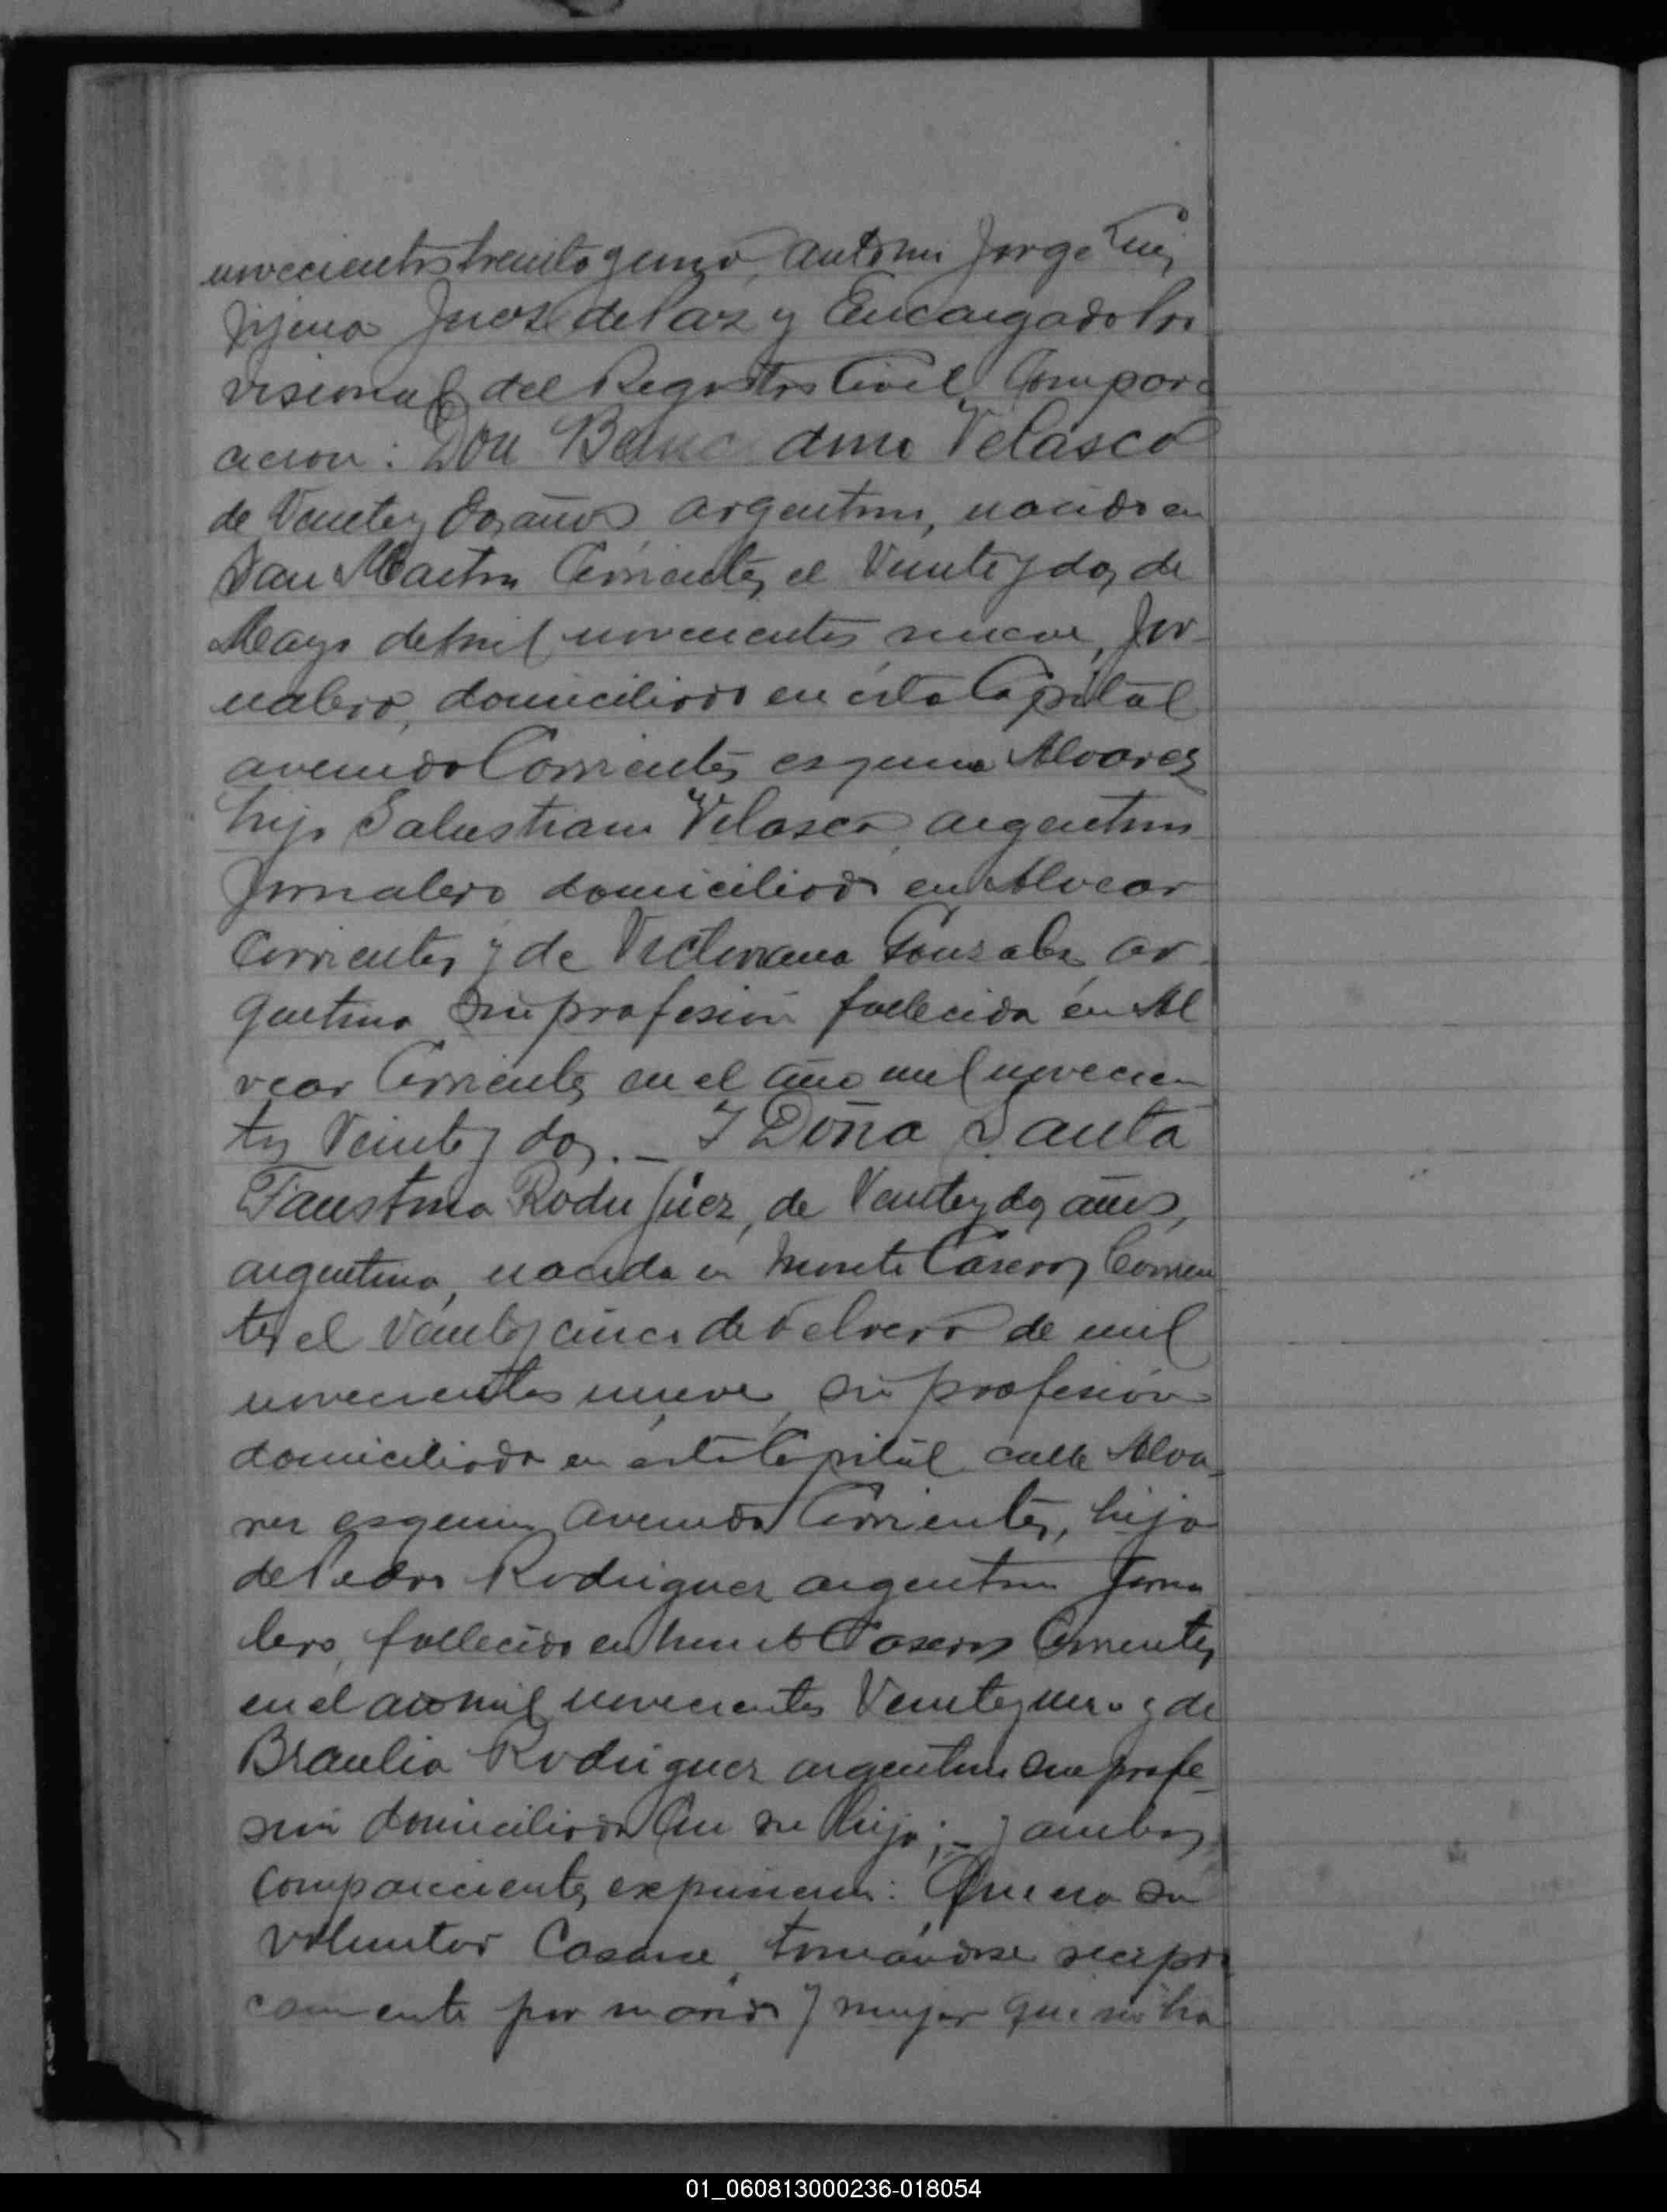 novecientos treinta y uno, ante mi Jorge Luis
Jijena Juez de Paz y Encargado Pro
visional del Registro Civil, Compare
cieron: Don Bernardino Velasco
de Veinte y dos años, argentino, nacido en
San Martin Corrientes, el Veinte y dos de
Mayo de mil novecientos nueve, Jor-
nalero, domiciliado en esta Capital
avenida Corrientes esquina Alvarez
hijo Salustiano Velasco, argentino
Jornalero domiciliado en Alvear
Corrientes y de Victoriana Gonzalez, ar-
gentina sin profesión fallecida en Al
vear Corrientes, en el año mil novecien
tos Veinte y dos. — Y Doña Santa
Faustina Rodriguez, de Veinte y dos años,
argentina, nacida en Monte Caseros Corrien
tes el Veinte y cinco de Febrero de mil
novecientos nueve, sin profesión
domiciliada en esta Capital calle Alva-
rez esquina avenida Corrientes, hija
de Pedro Rodriguez argentino Jorna
lero, fallecido en Monte Caseros Corrientes,
en el año mil novecientos Veinte y uno y de
Braulia Rodriguez argentina sin profe-
sión domiciliada con su hija; — y ambos
comparecientes, expusieron: Que era su
voluntad Casarse, tomándose recipro
camente por marido y mujer que no ha
01_060813000236-018054